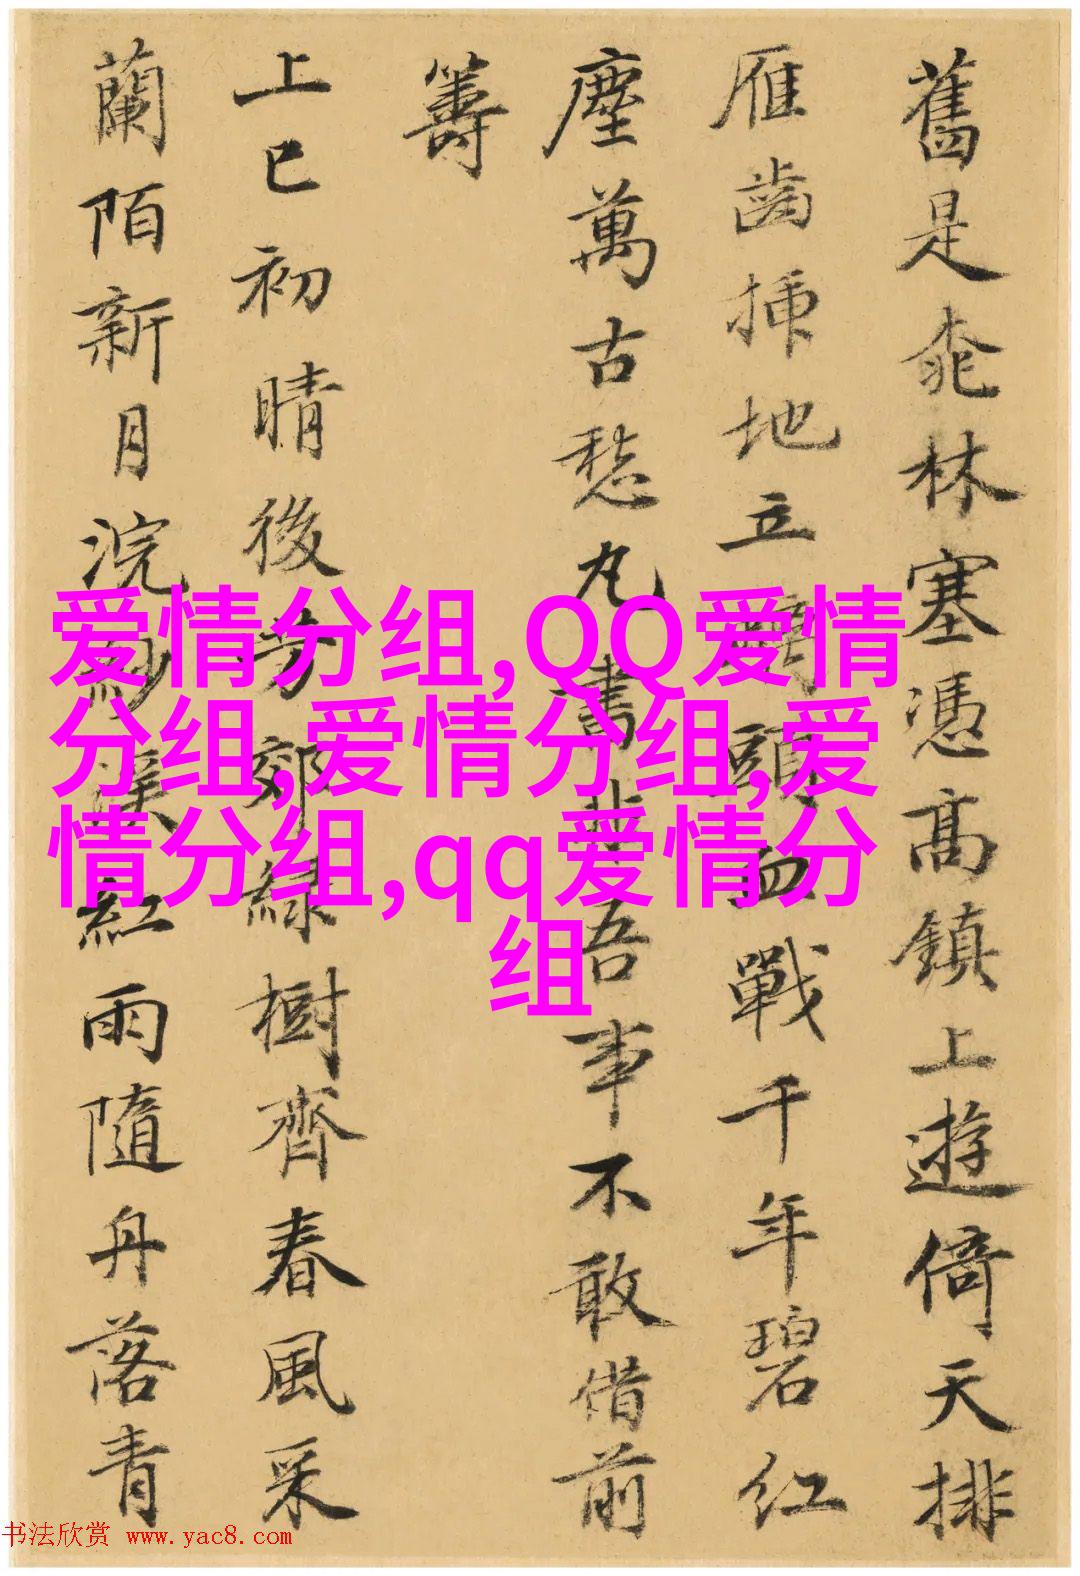 舊是桃林塞憑高鎮上遊倚天排
雁齒挿地立頭血戰千年碧紅
塵萬古愁丸書非吾事不敢借前
籌
上巳初晴後芳郊緑樹齊春風采
蘭陌新月浣紗溪紅雨隨丹落青
爱情分组,QQ爱情
分组,爱情分组,爱
情分组,qq爱情分
组
书法欣赏 www.yac8.com